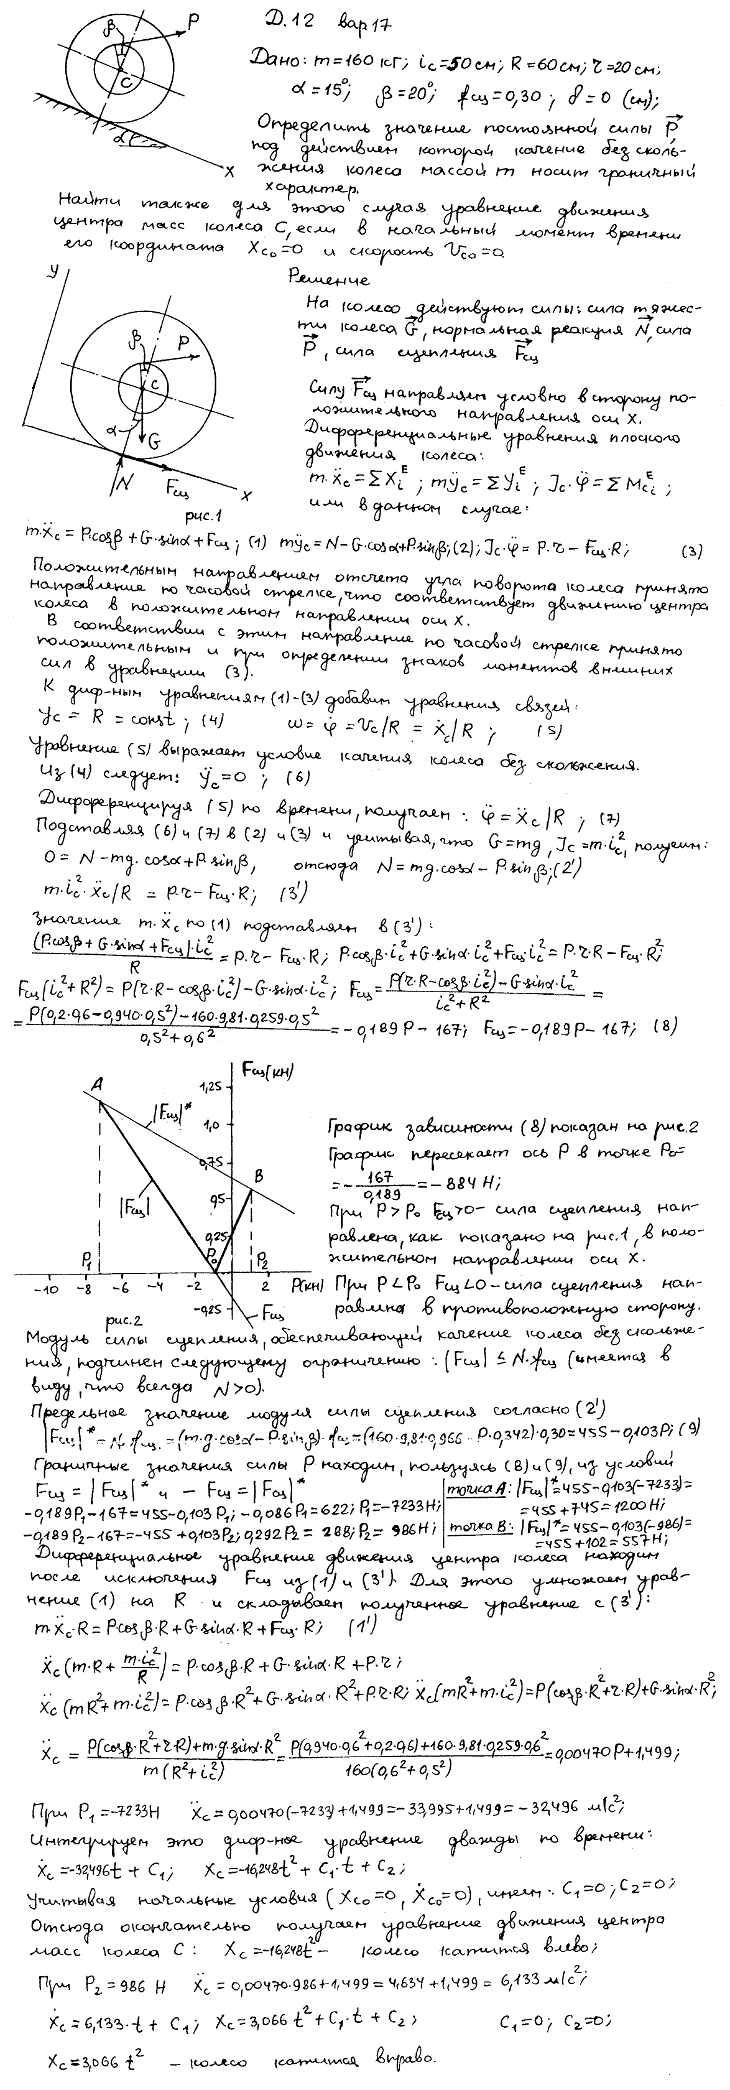 Д.12 вар 17
β P
C
α
x
Дано: m=160 кг; ic=50 см; R=60 см; r=20 см;
α=15°; β=20°; fсц=0,30; δ=0 (см);
Определить значение постоянной силы P,
под действием которой качение без сколь-
жения колеса массой m носит граничный
характер.
Найти также для этого случая уравнение движения
центра масс колеса C, если в начальный момент времени
его координата Xco=0 и скорость Vco=0.
Решение
y
β P
C
α G
N Fсц x
рис.1
На колесо действуют силы: сила тяжес-
ти колеса G, нормальная реакция N, сила
P, сила сцепления Fсц
Силу Fсц направляем условно в сторону по-
ложительного направления оси x.
Дифференциальные уравнения плоского
движения колеса:
m·ẍc=ΣXiᴱ; mÿc=ΣYiᴱ; Jc·φ̈=ΣMciᴱ;
или в данном случае:
m·ẍc=P·cosβ+G·sinα+Fсц; (1) mÿc=N-G·cosα+P·sinβ; (2); Jc·φ̈=P·r-Fсц·R; (3)
Положительным направлением отсчета угла поворота колеса принято
направление по часовой стрелке, что соответствует движению центра
колеса в положительном направлении оси x.
В соответствии с этим направление по часовой стрелке принято
положительным и при определении знаков моментов внешних
сил в уравнении (3).
К диф-ным уравнениям (1)-(3) добавим уравнения связей:
yc = R = const; (4) ω=φ̇=Vc/R=ẋc/R; (5)
Уравнение (5) выражает условие качения колеса без скольжения.
Из (4) следует: ÿc=0; (6)
Дифференцируя (5) по времени, получаем: φ̈=ẍc/R; (7)
Подставляя (6) и (7) в (2) и (3) и учитывая, что G=mg, Jc=m·ic², получим:
0=N-mg·cosα+P·sinβ, отсюда N=mg·cosα-P·sinβ; (2')
m·ic²·ẍc/R = P·r-Fсц·R; (3')
Значение m·ẍc по (1) подставляем в (3'):
(P·cosβ+G·sinα+Fсц)·ic²/R=P·r-Fсц·R; P·cosβ·ic²+G·sinα·ic²+Fсц·ic²=P·r·R-Fсц·R²;
Fсц(ic²+R²)=P(r·R-cosβ·ic²)-G·sinα·ic²; Fсц=P(r·R-cosβ·ic²)-G·sinα·ic²/ic²+R²=
=P(0,2·0,6-0,940·0,5²)-160·9,81·0,259·0,5²/0,5²+0,6²=-0,189P-167; Fсц=-0,189P-167; (8)
Fсц(кН)
A 1,25
|Fсц|* 1,0
0,75
B
|Fсц| 0,5
0,25
P1 P0 P2
-10 -8 -6 -4 -2 2 P(кН)
-0,25 Fсц
рис.2
График зависимости (8) показан на рис.2
График пересекает ось P в точке P0=
=-167/0,189=-884 Н;
При P>P0 Fсц>0- сила сцепления нап-
равлена, как показано на рис.1, в поло-
жительном направлении оси x.
При P<P0 Fсц<0-сила сцепления нап-
равлена в противоположную сторону.
Модуль силы сцепления, обеспечивающей качение колеса без скольже-
ния, подчинен следующему ограничению: |Fсц| ≤ N·fсц (имеется в
виду, что всегда N>0).
Предельное значение модуля силы сцепления согласно (2')
|Fсц|*=N·fсц=(m·g·cosα-P·sinβ)·fсц=(160·9,81·0,966-P·0,342)·0,30=455-0,103P; (9)
Граничные значения силы P находим, пользуясь (8) и (9), из условий
Fсц=|Fсц|* и -Fсц=|Fсц|*
-0,189P1-167=455-0,103P1; -0,086P1=622; P1=-7233Н;
-0,189P2-167=-455+0,103P2; 0,292P2=288; P2=986Н;
точка A: |Fсц|*=455-0,103(-7233)=
=455+745=1200 Н;
точка B: |Fсц|*=455-0,103(-986)=
=455+102=557 Н;
Дифференциальное уравнение движения центра колеса находим
после исключения Fсц из (1) и (3'). Для этого умножаем урав-
нение (1) на R и складываем полученное уравнение с (3'):
m·ẍc·R=P·cosβ·R+G·sinα·R+Fсц·R; (1')
ẍc(m·R+m·ic²/R)=P·cosβ·R+G·sinα·R+P·r;
ẍc(mR²+m·ic²)=P·cosβ·R²+G·sinα·R²+P·r·R; ẍc(mR²+m·ic²)=P(cosβ·R²+r·R)+G·sinα·R²;
ẍc=P(cosβ·R²+r·R)+m·g·sinα·R²/m(R²+ic²)=P(0,940·0,6²+0,2·0,6)+160·9,81·0,259·0,6²/160(0,6²+0,5²)=0,00470P+1,499;
При P1=-7233Н ẍc=0,00470(-7233)+1,499=-33,995+1,499=-32,496 м/с²;
Интегрируем это диф-ное уравнение дважды по времени:
ẋc=-32,496t+C1; xc=-16,248t²+C1·t+C2;
Учитывая начальные условия (Xco=0, Ẋco=0), имеем: C1=0; C2=0;
Отсюда окончательно получаем уравнение движения центра
масс колеса C: Xc=-16,248t²- колесо катится влево;
При P2=986 Н ẍc=0,00470·986+1,499=4,634+1,499=6,133 м/с²;
ẋc=6,133·t+C1; xc=3,066t²+C1·t+C2; C1=0; C2=0;
Xc=3,066t² - колесо катится вправо.